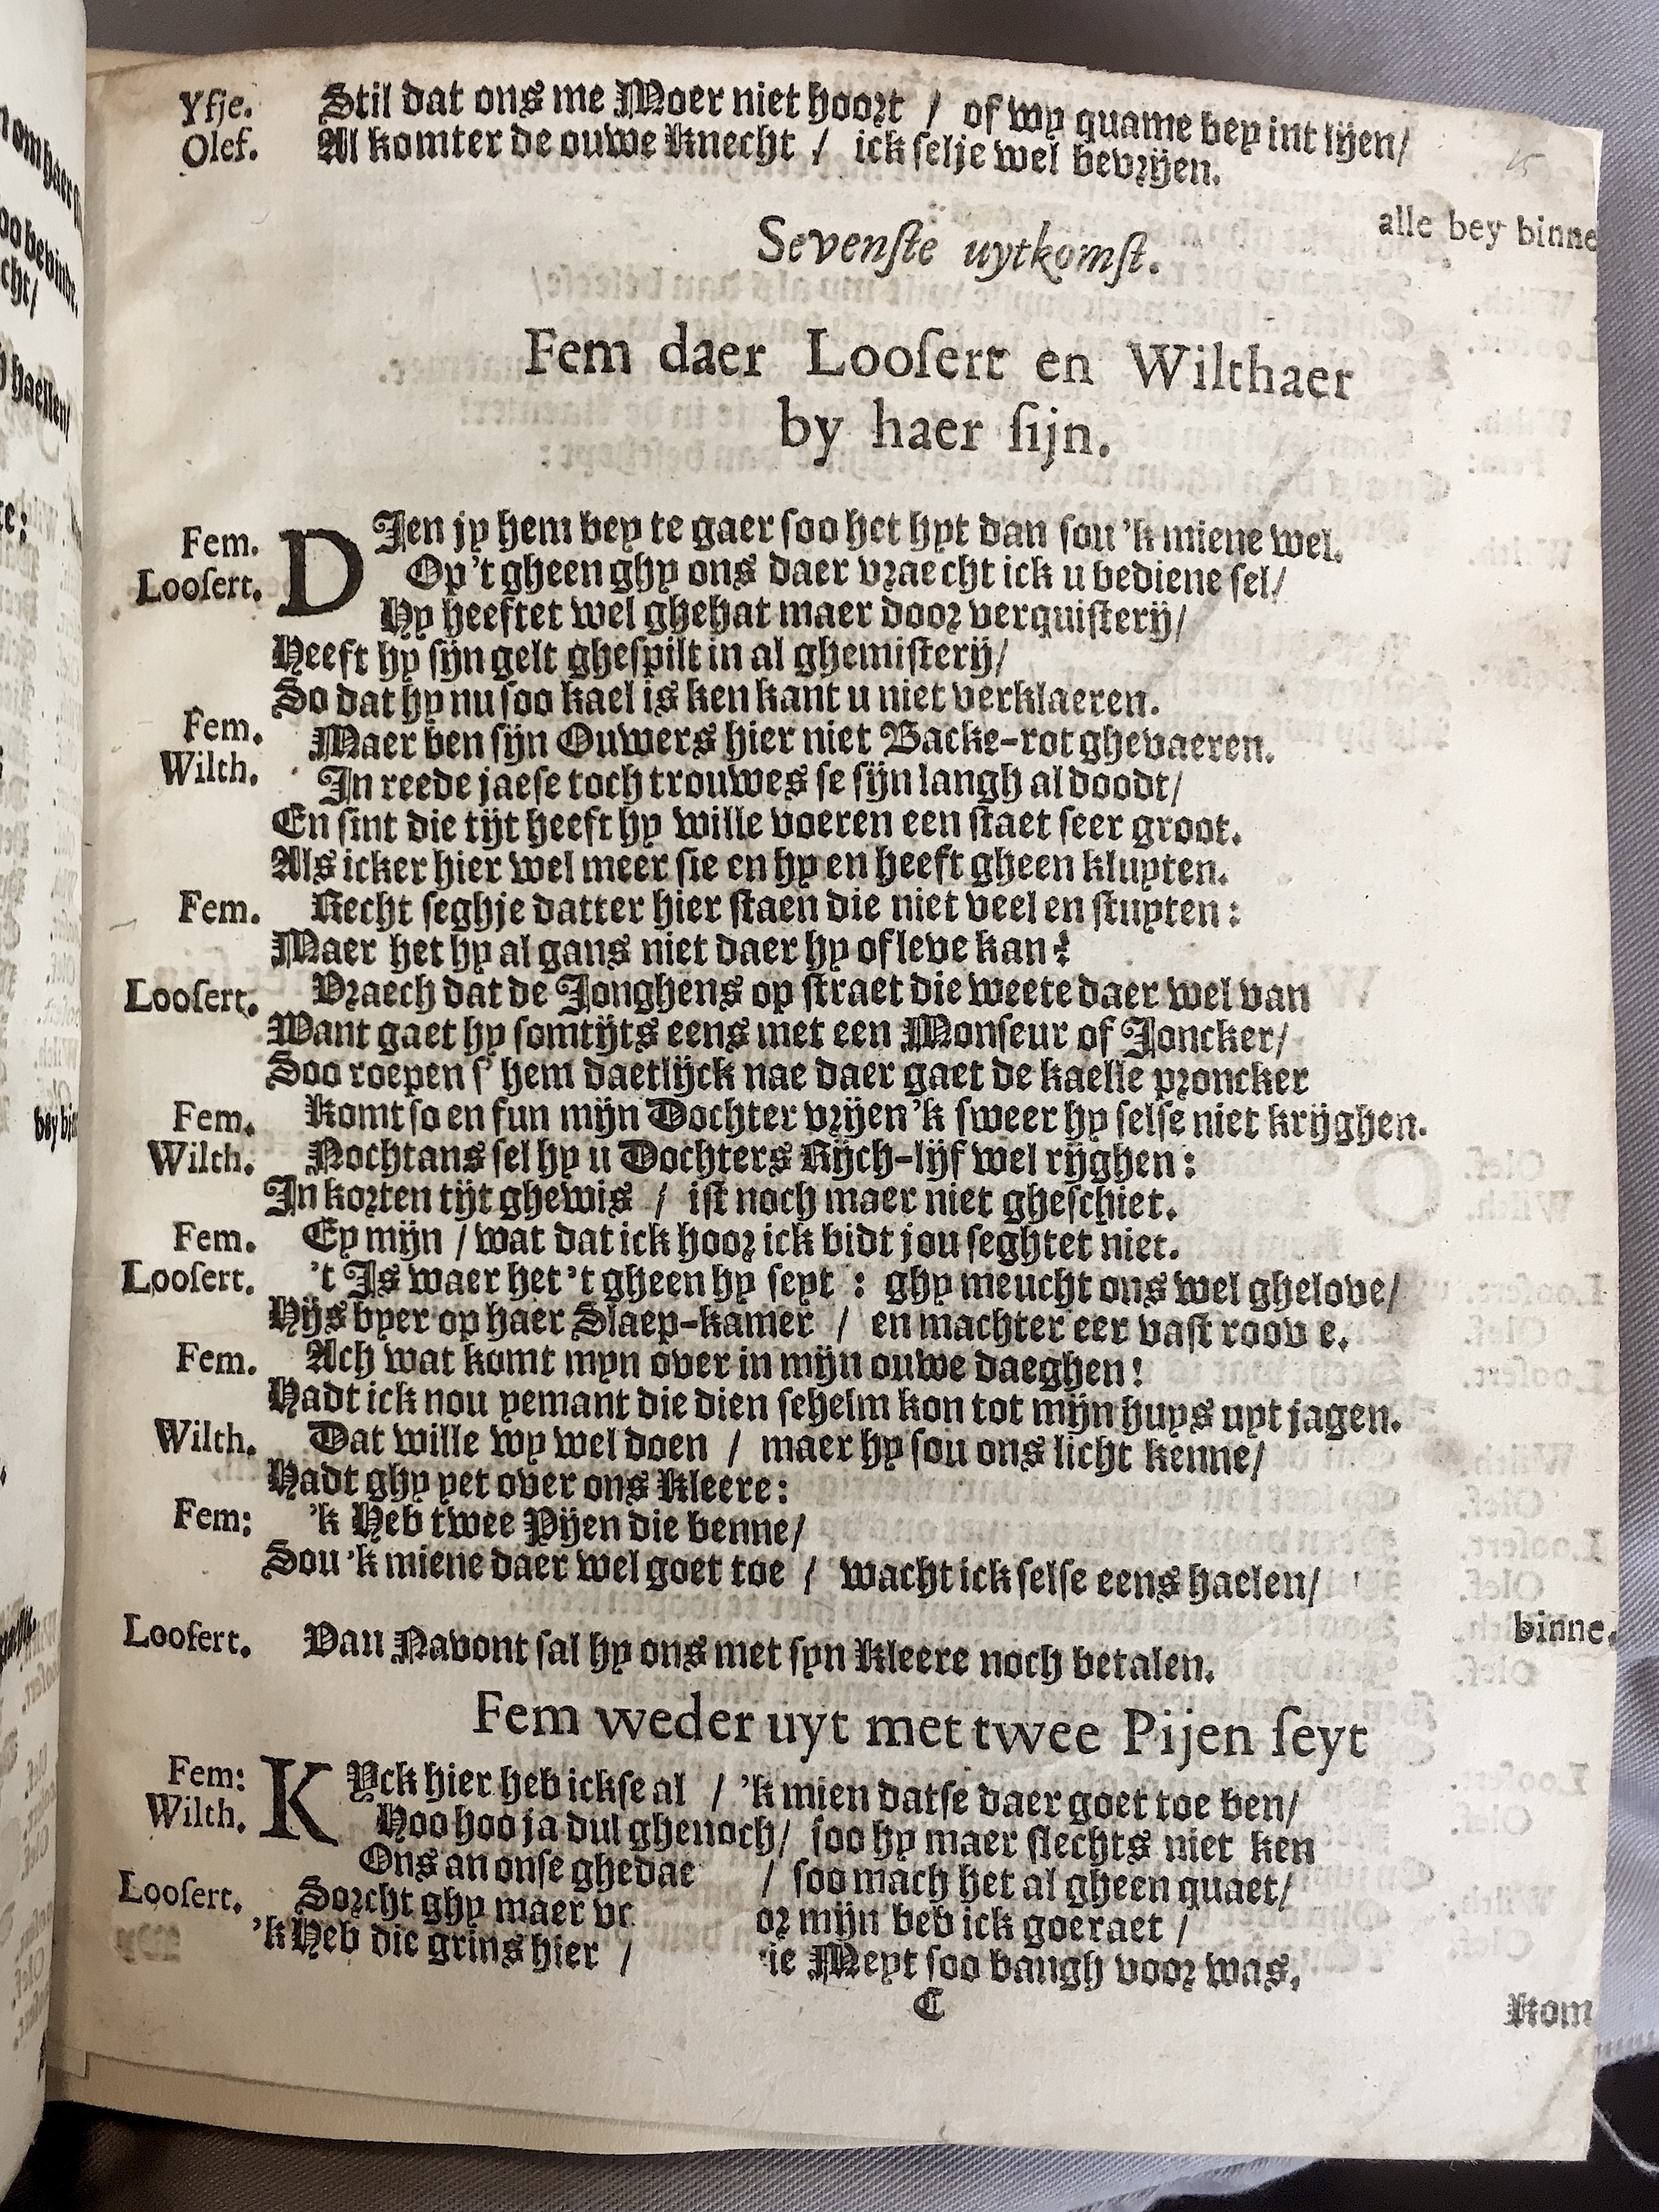 Yfje. Stil dat ons me Moer niet hoort / of wy quame bey int lijen/
Olef. Al komter de ouwe Knecht / ick selje wel bevrijen.
alle bey binne
Sevenste uytkomst.
Fem daer Loosert en Wilthaer
by haer sijn.
Fem. DIen jy hem bey te gaer soo het hyt dan sou 'k miene wel.
Loosert. Op 't gheen ghy ons daer vraecht ick u bediene sel/
Hy heeftet wel ghehat maer door verquisterij/
Heeft hy sijn gelt ghespilt in al ghemisterij/
So dat hy nu soo kael is ken kant u niet verklaeren.
Fem. Maer ben sijn Ouwers hier niet Backe-rot ghevaeren.
Wilth. In reede jaese toch trouwes se sijn langh al doodt/
En sint die tijt heeft hy wille voeren een staet seer groot.
Als icker hier wel meer sie en hy en heeft gheen kluyten.
Fem. Recht seghje datter hier staen die niet veel en stuyten:
Maer het hy al gans niet daer hy of leve kan?
Loosert. Vraech dat de Jonghens op straet die weete daer wel van
Want gaet hy somtijts eens met een Monseur of Joncker/
Soo roepen s' hem daetlijck nae daer gaet de kaelle proncker
Fem. Komt so en fun mijn Dochter vrijen 'k sweer hy selse niet krijghen.
Wilth. Nochtans sel hy u Dochters Rijch-lijf wel rijghen:
In korten tijt ghewis / ist noch maer niet gheschiet.
Fem. Ey mijn / wat dat ick hoor ick bidt jou seghtet niet.
Loosert. 't Is waer het 't gheen hy seyt : ghy meucht ons wel ghelove/
Hijs byer op haer Slaep-kamer / en machter eer vast roov e.
Fem. Ach wat komt myn over in mijn ouwe daeghen!
Hadt ick nou yemant die dien sehelm kon tot mijn huys uyt jagen.
Wilth. Dat wille wy wel doen / maer hy sou ons licht kenne/
Hadt ghy yet over ons Kleere:
Fem: 'k Heb twee Pijen die benne/
Sou 'k miene daer wel goet toe / wacht ick selse eens haelen/
binne.
Loosert. Van Navont sal hy ons met syn Kleere noch betalen.
Fem weder uyt met twee Pijen seyt
Fem: KYck hier heb ickse al / 'k mien datse daer goet toe ben/
Wilth. Hoo hoo ja dul ghenoch/ soo hy maer slechts niet ken
Ons an onse ghedae / soo mach het al gheen quaet/
Loosert. Sorcht ghy maer vo or mijn beb ick goeraet /
'k Heb die grins hier / ie Meyt soo bangh voor was,
C
Kom